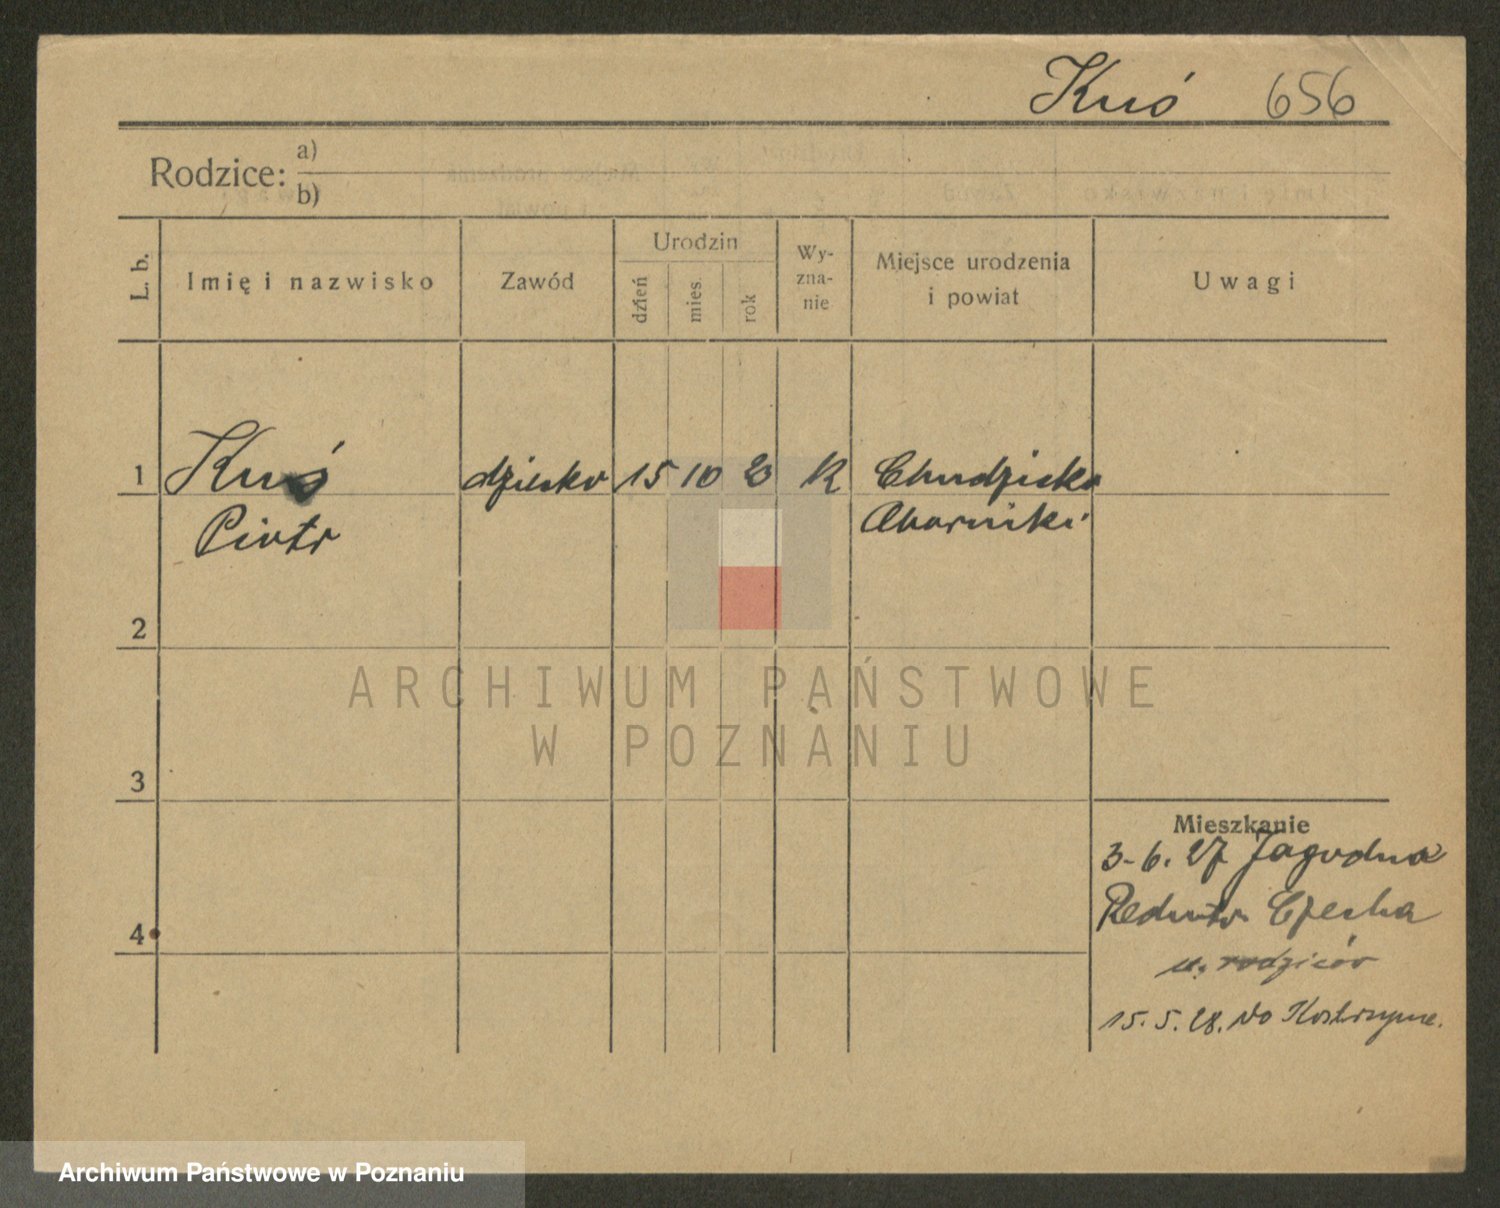 Kuś 656
Rodzice: a)
b)
L. b. Imię i nazwisko Zawód Urodzin dzień mies. rok Wy-zna-nie Miejsce urodzenia i powiat Uwagi
1 Kuś dziecko 15 10 20 K
Piotr
2
ARCHIWUM PAŃSTWOWE
W POZNANIU
3
Mieszkanie
3-6. 27 Jagodna
4
u. rodziców
15. 5. 28. do
Archiwum Państwowe w Poznaniu